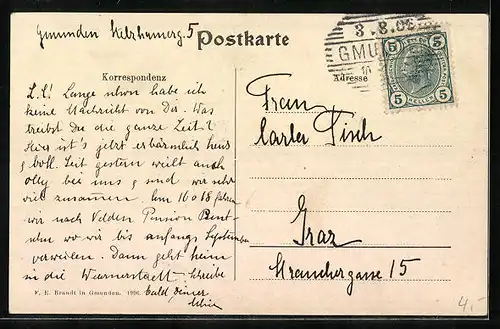 Gmunden
Postkarte
3.8.06
GMU
Korrespondenz
Adresse
5 5
5 HELLER 5
L.L! Lange schon habe ich
keine Nachricht von Dir. Was
treibst du die ganze Zeit?
Hier ist's jetzt erbärmlich heiß
voll. Seit gestern weilt auch
Olly bei uns & sind wir sehr
viel zusammen. Am 16 o 18 fahren
wir nach Velden Pension
wo wir bis anfangs September
verweilen. Dann geht heim
in die Schreibe
bald Deiner
Frau
Pisch
Graz
Strauchergasse 15
F. E. Brandt in Gmunden. 1906.
4.-